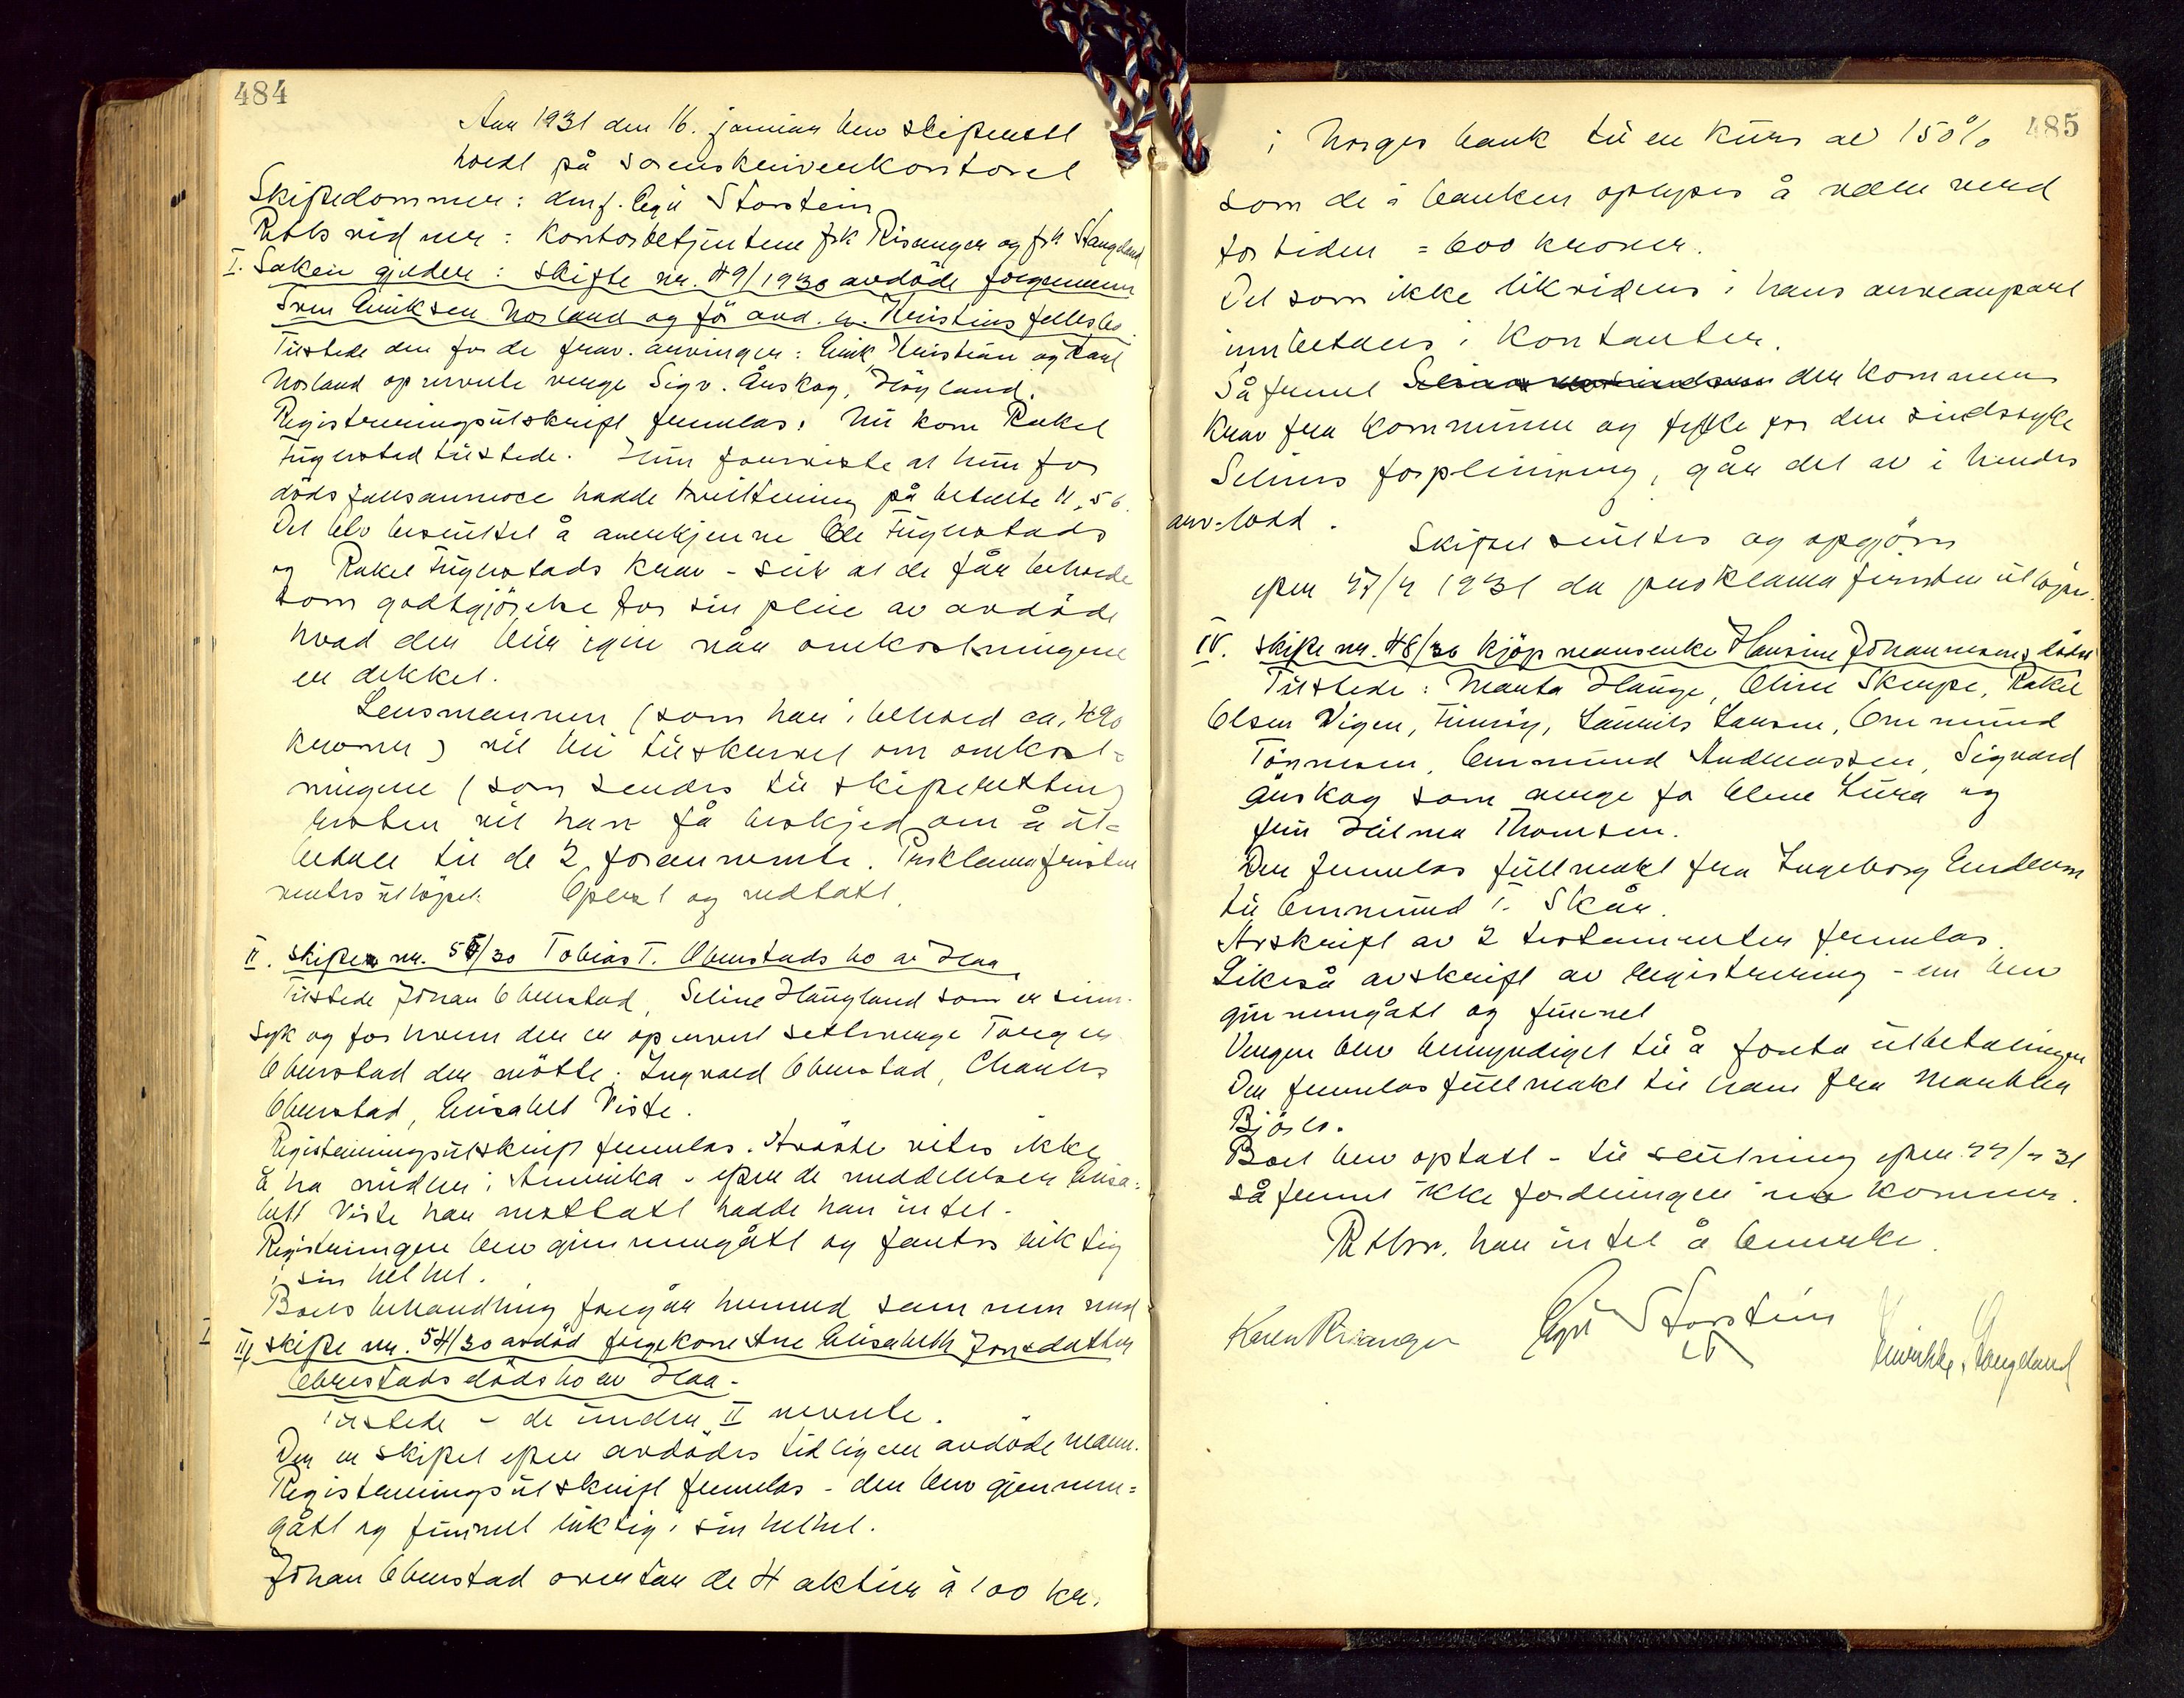 484
Aar 1931 den 16. januar blev skifterett
holdt på sorenskriverkontoret
Skiftedommer: dmf. Egil Storstein
Rettsvidner: Kontorbetjentene frk Risanger og frk Stangeland
I. Saken gjelder: skifte nr. 49/1930 avdöde forgemann
Sven Eriksen Norland og för avd. h. Kristines fellesbo.
Tilstede den for de frav. arvinger: Eirik, Kristian og Karl
Norland opnevnte verge Sigv. Auskog, Högland.
Registreringsutskrift fremlas. Nu kom Rakel
Fuglestad tilstede. Hun foreviste at hun for
dödsfallsannonce hadde kvittering på betalte 11,56.
Det blev besluttet å anerkjenne Ole Fuglestads
og Rakel Fuglestads krav - slik at de får beholde
som godtgjörelse for sin pleie av avdöde
hvad der blir igjen når omkostningene
er dekket.
Lensmannen (som har i behold ca. 190
kroner) vil bli tilskrevet om omkost-
ningene (som sendes til skifteretten)
resten vil han få beskjed om å ut-
betale til de 2 forannevnte. Proklamafristen
ventes utlöpet. Oplest og vedtatt.
II. Skifte nr. 55/30 Tobias T. Obrestads bo av Haa.
Tilstede Johan Obrestad, Seline Haugland som er sinn-
syk og for hvem der er opnevnt setteverge Torger
Obrestad der mötte. Ingvald Obrestad, Charles
Obrestad, Elisabet Viste.
Registreringsutskrift fremlas. Avdöde vites ikke
å ha midler i Amerika - efter de meddelelser Elisa-
bett Viste har mottatt hadde han intet.
Registreringen blev gjennemgått og fantes riktig
i sin helhet.
Boets behandling foregår herved sammen med
III skifte nr. 54/30 avdöd forgekone Ane Elisabeth Jonsdatter
Obrestads dödsbo av Haa.
Tilstede - de under II nevnte.
Der er skiftet efter avdödes tidligere avdöde mann.
Registreringsutskrift fremlas - den blev gjennem-
gått og funnet riktig i sin helhet.
Johan Obrestad overtar de 4 aktier à 100 kr.
485
i Norges bank til en kurs av 150%
som de i banken oplyses å være verd
for tiden = 600 kroner.
Det som ikke likvideres i hans arveanpart
innbetales i kontanter.
Så fremt der kommer
krav fra kommune og fylke for den sindssyke
Selines forpleining, går det av i hendes
arv-lodd.
Skiftet sluttes og opgjöres
efter 27/2 1931 da proklamafristen utlöper.
IV. Skifte nr. 48/30 kjöpmannsenke Hansine Johannesens dödsb
Tilstede: Marta Hauge, Oline Skeipe, Rakel
Olsen Vigen, Timöy, Laurits Larsen, Ommund
Tönnesen, Ommund Andreassen, Sigvard
Auskog som verge for Elene Lura og
fru Hilma Thomsen.
Der fremlas fullmakt fra Ingeborg Endresen
til Ommund T. Skår.
Avskrift av 2 testamenter fremlas.
Likeså avskrift av registrering - en blev
gjennemgått og funnet
Vergen blev bemyndiget til å foreta utbetalingen
Der fremlas fullmakt til ham fra Marthea
Bjöslv.
Boet blev optatt - til slutning efter 27/2 31
såfremt ikke fordringer nå kommer.
Rettsv. har intet å bemerke.
Karen Risanger Egil Storstein Henrikke Stangeland